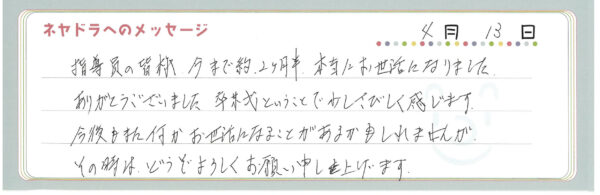 ネヤドラへのメッセージ 4月 13日
指導員の皆様 今まで約2ヶ月半、本当にお世話になりました
ありがとうございました 卒業式ということで少しさびしく感じます
今後もまた何かお世話になることがあるかもしれませんが、
その時は、どうぞよろしくお願い申し上げます。